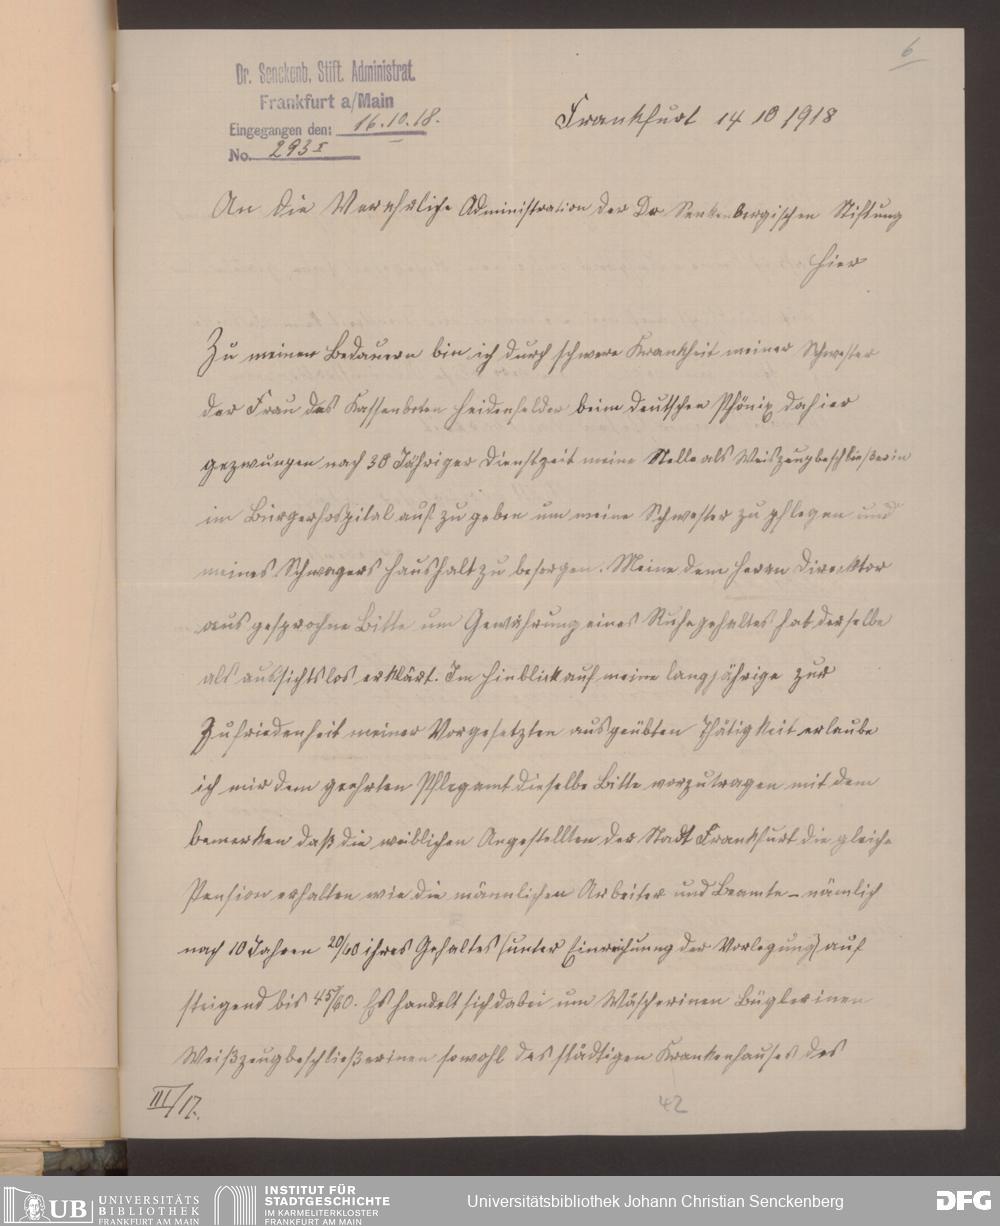 6
Dr. Senckenb. Stift. Administrat.
Frankfurt a/Main
Eingegangen den: 16.10.18.
No. 293 I
Frankfurt 14 10 1918
An die Verehrliche Administration der Dr Senkenbergischen Stiftung
hier
Zu meinem Bedauern bin ich durch schwere Krankheit meiner Schwester
der Frau des Kassenboten Heidenfelder beim Deutschen Phönix dahier
gezwungen nach 38 Jähriger Dienstzeit meine Stelle als Weiszeugbeschließerin
im Bürgerhospital auf zu geben um meine Schwester zu pflegen und
meines Schwagers Haushalt zu besorgen. Meine dem Herrn Direcktor
aus gesprochne Bitte um Gewährung eines Ruhegehaltes hat derselbe
als aussichtslos erklärt. Im Hinblick auf meine langjährige zur
Zufriedenheit meiner Vorgesetzten ausgeübten Thätigkeit erlaube
ich mir dem geehrten Pflegamt dieselbe Bitte vorzutragen mit dem
bemerken daß die weiblichen Angestellten der Stadt Frankfurt die gleiche
Pension erhalten wie die männlichen Arbeiter und Beamte – nämlich
nach 10 Jahren 20/60 ihres Gehaltes (unter der ) auf
steigend bis 45/60. Es handelt sich dabei um Wäscherinen Büglerinen
Weißzeugbeschließerinen sowohl des städtigen Krankenhauses des
III/17.
42
UB UNIVERSITÄTS
BIBLIOTHEK
FRANKFURT AM MAIN
INSTITUT FÜR
STADTGESCHICHTE
IM KARMELITERKLOSTER
FRANKFURT AM MAIN
Universitätsbibliothek Johann Christian Senckenberg
DFG